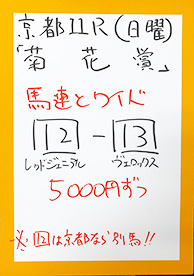 京都11R(日曜)
「菊花賞」
馬連とワイド
12-13
レッドジェニアル ヴェロックス
5000円ずつ
※12は京都なら別馬!!